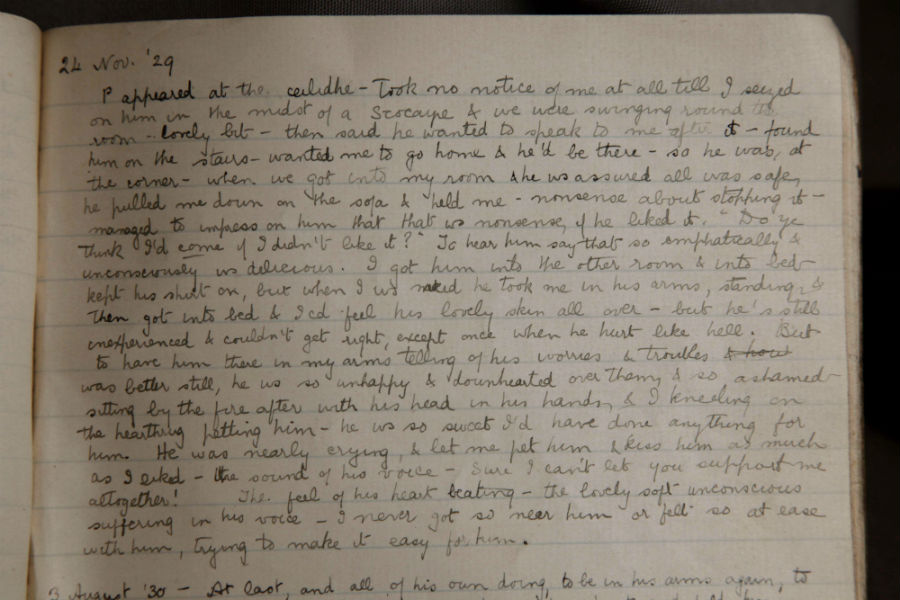 24 Nov. '29
P appeared at the ceilidhe - Took no notice of me at all till I seized
on him in the midst of a & we were swinging round the
room - lovely bit - then said he wanted to speak to me after it - found
him on the stairs - wanted me to go home & he'd be there - so he was, at
the corner - when we got into my room & he ws assured all was safe,
he pulled me down on the sofa & held me - nonsense about stopping it -
managed to impress on him that that ws nonsense, if he liked it. "Do ye
think I'd come if I didn't like it?" To hear him say that so emphatically &
unconsciously ws delicious. I got him into the other room & into bed -
kept his shirt on, but when I ws naked he took me in his arms, standing, &
then got into bed & I cd feel his lovely skin all over - but he's still
inexperienced & couldn't get right, except once when he hurt like hell. But
to have him there in my arms telling of his worries & troubles & how
was better still, he ws so unhappy & downhearted over them, & so ashamed -
sitting by the fire after with his head in his hands, & I kneeling on
the hearthrug petting him - he ws so sweet I'd have done anything for
him. He was nearly crying, & let me pet him & kiss him as much
as I liked - the sound of his voice - Sure I can't let you support me
altogether! The feel of his heart beating - the lovely soft unconscious
suffering in his voice - I never got so near him or felt so at ease
with him, trying to make it easy for him.
3 August '30 - At last, and all of his own doing, to be in his arms again, to